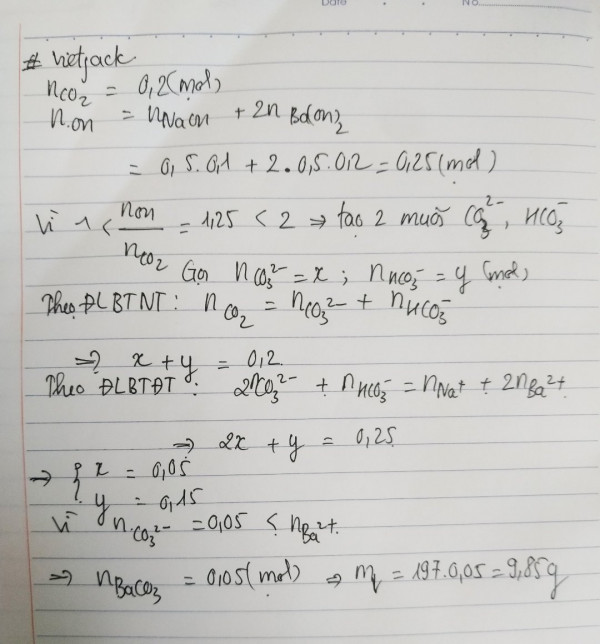 Date . . No.
# Vietjack
nCO₂ = 0,2(mol)
nOH = nNaOH + 2nBa(OH)₂
= 0,5.0,1 + 2.0,5.0,2 = 0,25(mol)
Vì 1 < nOH/nCO₂ = 1,25 < 2 ⇒ tạo 2 muối CO₃²⁻, HCO₃⁻
Gọi nCO₃²⁻ = x ; nHCO₃⁻ = y (mol)
Theo ĐLBTNT : nCO₂ = nCO₃²⁻ + nHCO₃⁻
⇒ x + y = 0,2
Theo ĐLBTĐT : 2nCO₃²⁻ + nHCO₃⁻ = nNa⁺ + 2nBa²⁺
⇒ 2x + y = 0,25
→ { x = 0,05
y = 0,15
Vì nCO₃²⁻ = 0,05 < nBa²⁺
⇒ nBaCO₃ = 0,05(mol) ⇒ m↓ = 197.0,05 = 9,85g